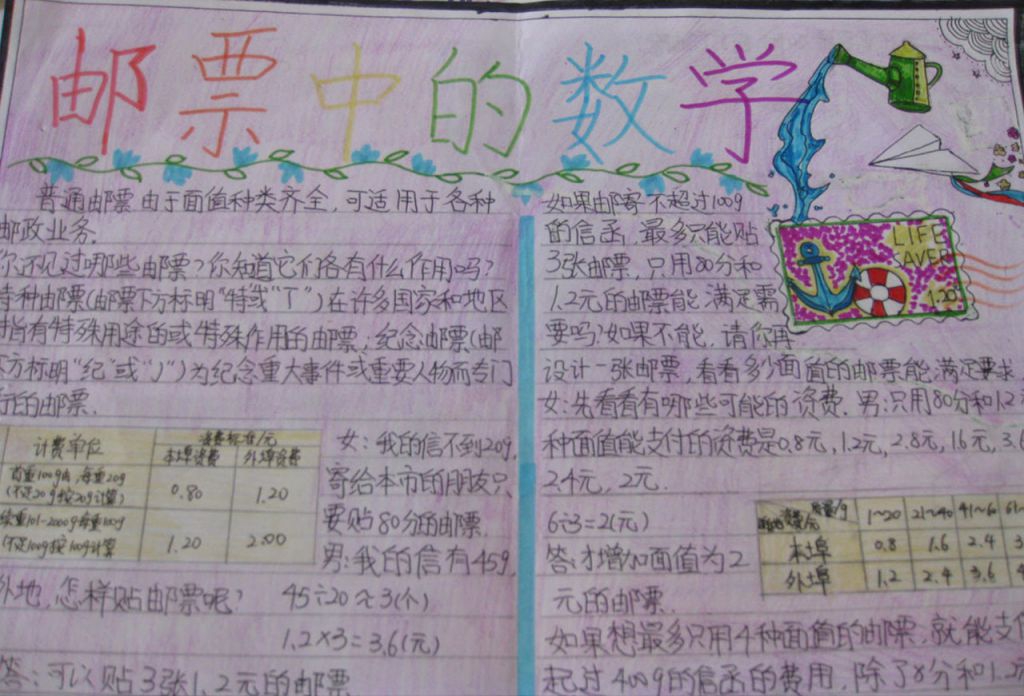 邮票中的数学
普通邮票由于面值种类齐全,可适用于各种
邮政业务.
你还见过哪些邮票?你知道它们各有什么作用吗?
特种邮票(邮票下方标明“特或“T”)在许多国家和地区
指有特殊用途的或特殊作用的邮票;纪念邮票(邮
下方标明“纪”或“J”)为纪念重大事件或重要人物而专门
行的邮票.
计费单位 资费标准/元
本埠资费 外埠资费
首重100g内,每重20g
(不足20g按20g计算) 0.80 1.20
续重101-2000g每重100g
(不足100g按100g计算 1.20 2.00
女:我的信不到20g,
寄给本市的朋友只
要贴80分的邮票.
男:我的信有45g,
外地,怎样贴邮票呢? 45÷20≈3(个)
1.2×3=3.6(元)
答:可以贴3张1.2元的邮票
如果邮寄不超过100g
的信函,最多只能贴
3张邮票,只用80分和
1.2元的邮票能满足需
要吗?如果不能,请你再
设计一张邮票,看看多少面值的邮票能满足要求
女:先看看有哪些可能的资费.男:只用80分和1.2
种面值能支付的资费是0.8元,1.2元,2.8元,1.6元,3.6
2.4元,2元.
6÷3=2(元)
答:才增加面值为2
元的邮票.
1~20 21~40 41~60 61~
本埠 0.8 1.6 2.4 3
外埠 1.2 2.4 3.6 4
如果想最多只用4种面值的邮票,就能支付
起过400g的信函的费用,除了8分和1.2元
LIFE
AVER
1.20